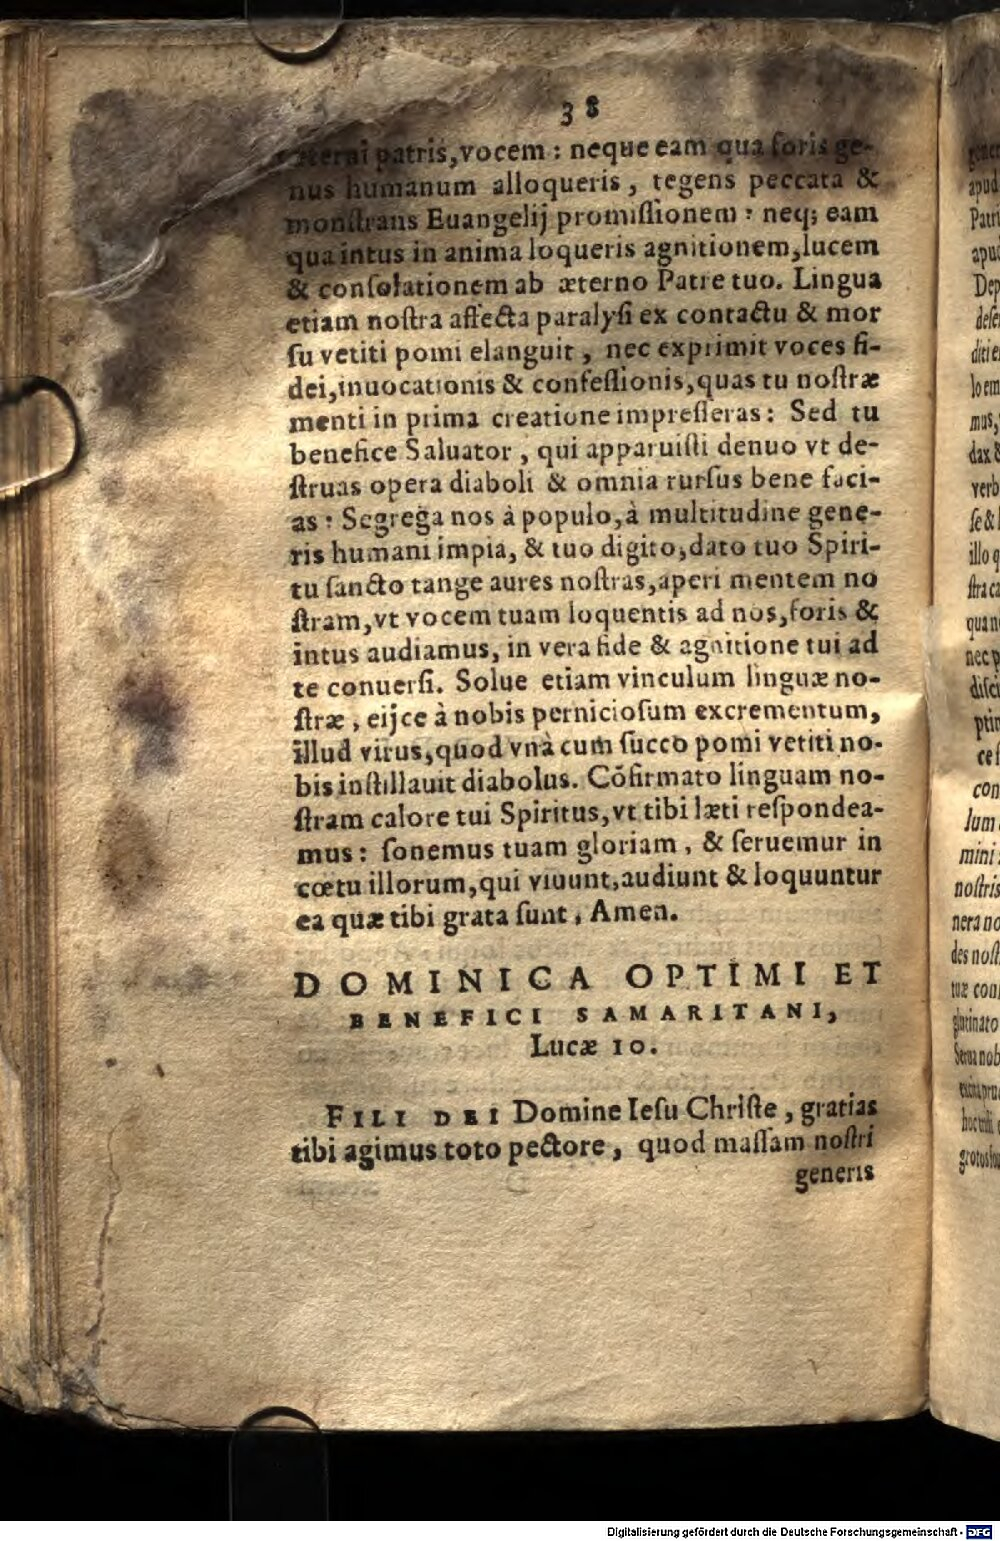 38
æterni patris, vocem: neque eam qua foris ge-
nus humanum alloqueris, tegens peccata &
monſtrans Euangelij promiſſionem: neq; eam
qua intus in anima loqueris agnitionem, lucem
& conſolationem ab æterno Patre tuo. Lingua
etiam noſtra affecta paralyſi ex contactu & mor
ſu vetiti pomi elanguit, nec exprimit voces fi-
dei, inuocationis & confeſſionis, quas tu noſtræ
menti in prima creatione impreſſeras: Sed tu
benefice Saluator, qui apparuiſti denuo vt de-
ſtruas opera diaboli & omnia rurſus bene faci-
as: Segrega nos à populo, à multitudine gene-
ris humani impia, & tuo digito, dato tuo Spiri-
tu ſancto tange aures noſtras, aperi mentem no
ſtram, vt vocem tuam loquentis ad nos, foris &
intus audiamus, in vera fide & agnitione tui ad
te conuerſi. Solue etiam vinculum linguæ no-
ſtræ, eijce à nobis pernicioſum excrementum,
illud virus, quod vnà cum ſucco pomi vetiti no-
bis inſtillauit diabolus. Cōfirmato linguam no-
ſtram calore tui Spiritus, vt tibi læti reſpondea-
mus: ſonemus tuam gloriam, & ſeruemur in
cœtu illorum, qui viuunt, audiunt & loquuntur
ea quæ tibi grata ſunt, Amen.
DOMINICA OPTIMI ET
BENEFICI SAMARITANI,
Lucæ 10.
FILI DEI Domine Ieſu Chriſte, gratias
tibi agimus toto pectore, quod maſſam noſtri
generis
Digitalisierung gefördert durch die Deutsche Forschungsgemeinschaft - DFG